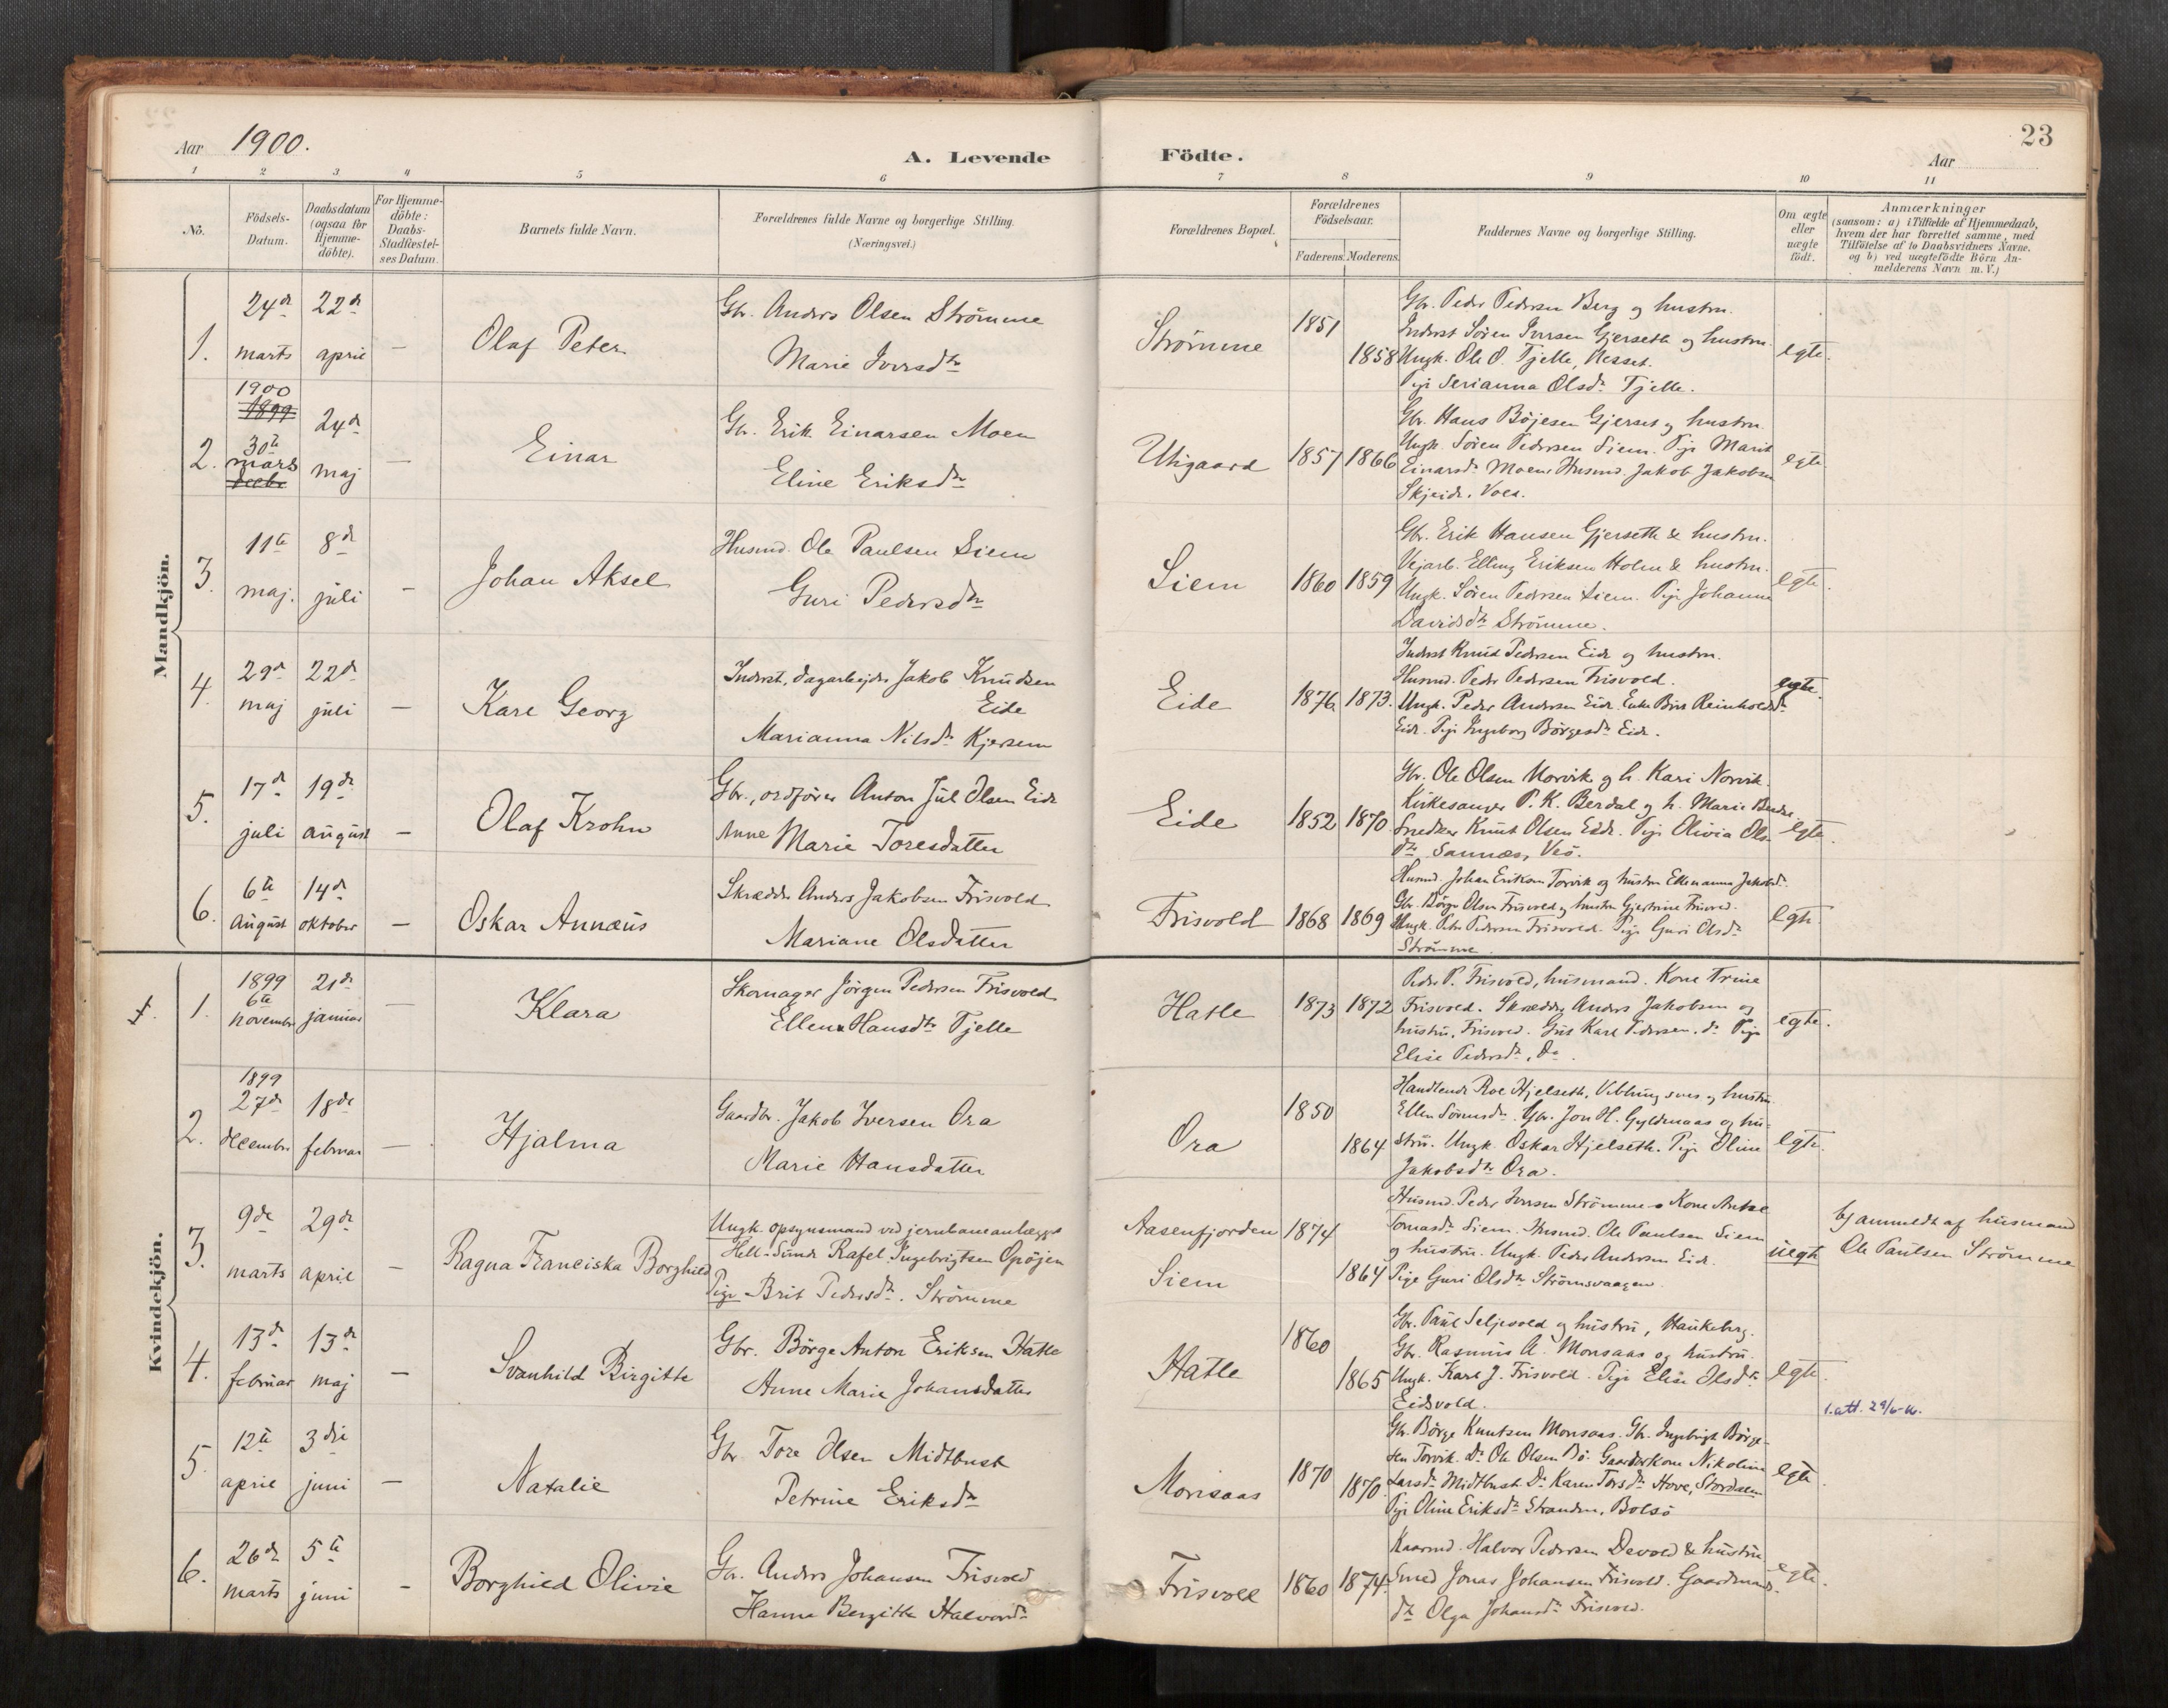 Aar 1900.
A. Levende
Födte.
23
Aar
1 2 3 4 5 6 7 8 9 10 11
No.
Födsels-
Datum.
Daabsdatum
(ogsaa for
Hjemme-
döbte).
For Hjemme-
döbte:
Daabs-
Stadfæstel-
ses Datum.
Barnets fulde Navn.
Forældrenes fulde Navne og borgerlige Stilling.
(Næringsvei.)
Forældrenes Bopæl.
Forældrenes
Födselsaar.
Faderens. Moderens.
Faddernes Navne og borgerlige Stilling.
Om ægte
eller
uægte
födt.
Anmærkninger
(saasom: a) i Tilfælde af Hjemmedaab,
hvem der har forrettet samme, med
Tilföielse af to Daabsvidners Navne.
og b) ved uægtefödte Börn An-
melderens Navn m. V.)
Mandkjön.
1.
24de
marts
22de
april
—
Olaf Peter
Gbr. Anders Olsen Strömme
Marie Iversdtr
Strömme
1851
1858
Gbr. Peder Pedersen Berg og hustru.
Inderst Sören Iversen Gjerseth og hustru.
Ungk. Ole O. Tjelle, Nesset.
Pige Serianna Olsdr. Tjelle.
egte.
2.
1900
1899
30te
mars
decbr
24de
maj
—
Einar
Gbr. Erik Einarsen Moen
Eline Eriksdtr
Utigaard
1857
1866
Gbr. Hans Böjesen Gjerset og hustru.
Ungk. Sören Pedersen Siem. Pige Marit
Einarsdr. Moen. Husmd. Jakob Jakobsen
Skjeide. Voes.
egte
3.
11te
maj.
8de
juli
—
Johan Aksel
Husmd. Ole Paulsen Siem
Guri Pedersdtr
Siem
1860
1859
Gbr. Erik Hansen Gjerseth & hustru.
Vejarb. Elling Eriksen Holm & hustru.
Ungk. Sören Pedersen Siem. Pige Johanna
Davidsdtr Strömme.
egte.
4.
29de
maj
22de
juli
—
Karl Georg
Inderst, dagarbejder Jakob Knudsen
Eide
Marianna Nilsdr. Kjersem
Eide
1876
1873.
Inderst Knud Pedersen Eide og hustru.
Husmd. Peder Pedersen Frisvold.
Ungk. Peder Andersen Eide. Enke Brit Reinholdsdr
Eide. Pige Ingeborg Börgesdr. Eide.
egte.
5.
17de
juli
19de
august
—
Olaf Krohn
Gbr., ordförer Anton Jul Olsen Eide
Anne Marie Toresdatter
Eide
1852
1870
Gbr. Ole Olsen Norvik og h. Kari Norvik.
Kirkesanger P. K. Berdal og h. Marie Berdal.
Snedker Knut Olsen Eide. Pige Olivia Ols-
dtr Sannes, Veö.
egte.
6.
6te
August
14de
oktober
—
Oskar Annæus
Skrædder Anders Jakobsen Frisvold
Mariane Olsdatter
Frisvold
1868
1869
Husmd. Johan Eriksen Torvik og hustru Ellenanna Jakobsd.
Gbr. Börge Olsen Frisvold og hustru Gjertrine Frisvold.
Ungk. Peder Pedersen Frisvold. Pige Guri Olsdr
Strömme.
egte.
Kvindekjön.
1.
1899
6te
november
21de
januar
—
Klara
Skomager Jörgen Pedersen Frisvold
Ellen Hansdtr Tjelle
Hatle
1873
1872
Peder P. Frisvold, husmand. Kone Trine
Frisvold. Skrædder Anders Jakobsen og
hustru, Frisvold. Karl Pedersen. do Pige
Elise Pedersdr, do.
egte.
2.
1899
27de
december
18de
februar
—
Hjalma
Gaardbr. Jakob Iversen Ora
Marie Hansdatter
Ora
1850
1864
Handlende Roe Hjelseth, og hustru
Ellen Sörensdr. Gbr. Jon H. Gyldenaas og hu-
stru. Ungk. Oskar Hjelseth. Pige Oline
Jakobsdtr Ora.
egte.
3.
9de
marts
29de
april
—
Ragna Franciska Borghild
Ungk. opsynsmand ved jernbaneanlægget
Hell-Sunde Rafel Ingebrigtsen Opöjen
Pige Brit Pedersdtr. Strömme
Aasenfjorden
Siem
1874
1864
Husmd. Peder Iversen Strömme. Kone
Tomasdr Siem. Husmd. Ole Paulsen Siem
og hustru. Ungk. Peder Andersen Eide.
Pige Guri Olsdtr Strömsvaagen.
uegte
b) anmeldt af husmand
Ole Paulsen Strömme
4.
13de
februar
13de
maj
—
Svanhild Birgitte
Gbr. Börge Anton Eriksen Hatle
Anne Marie Johansdatter
Hatle
1860
1865
Gbr. Paul Seljevold og hustru, Haukeberg.
Gbr. Rasmus A. Monsaas og hustru.
Ungk. Karl J. Frisvold. Pige Elise Olsdtr
Eidsvold.
egte.
1.att. 29/6-16.
5.
12te
april
3die
juni
—
Natalie
Gbr Tore Olsen Midtbust
Petrine Eriksdtr
Monsaas
1870
1870
Gbr. Börge Knutsen Monsaas. Gbr. Ingebrigt Börge-
sen Torvik. Do Ole Olsen Bö. Gaardkone Nikoline
Larsdr. Midtbust. Do Karen Torsdr. Hove,
Pige Oline Eriksdr. Stranden, Bolsö
egte.
6.
26de
marts
5te
juni
—
Borghild Olivie
Gbr. Anders Johansen Frisvold
Hanna Bergitte Halvorsdr
Frisvoll
1860
1874
Kaarmd. Halvor Pedersen Devold & hustru
Smed Jonas Johansen Frisvold. Gaardmands-
dtr Olga Johansdr. Frisvold.
egte.